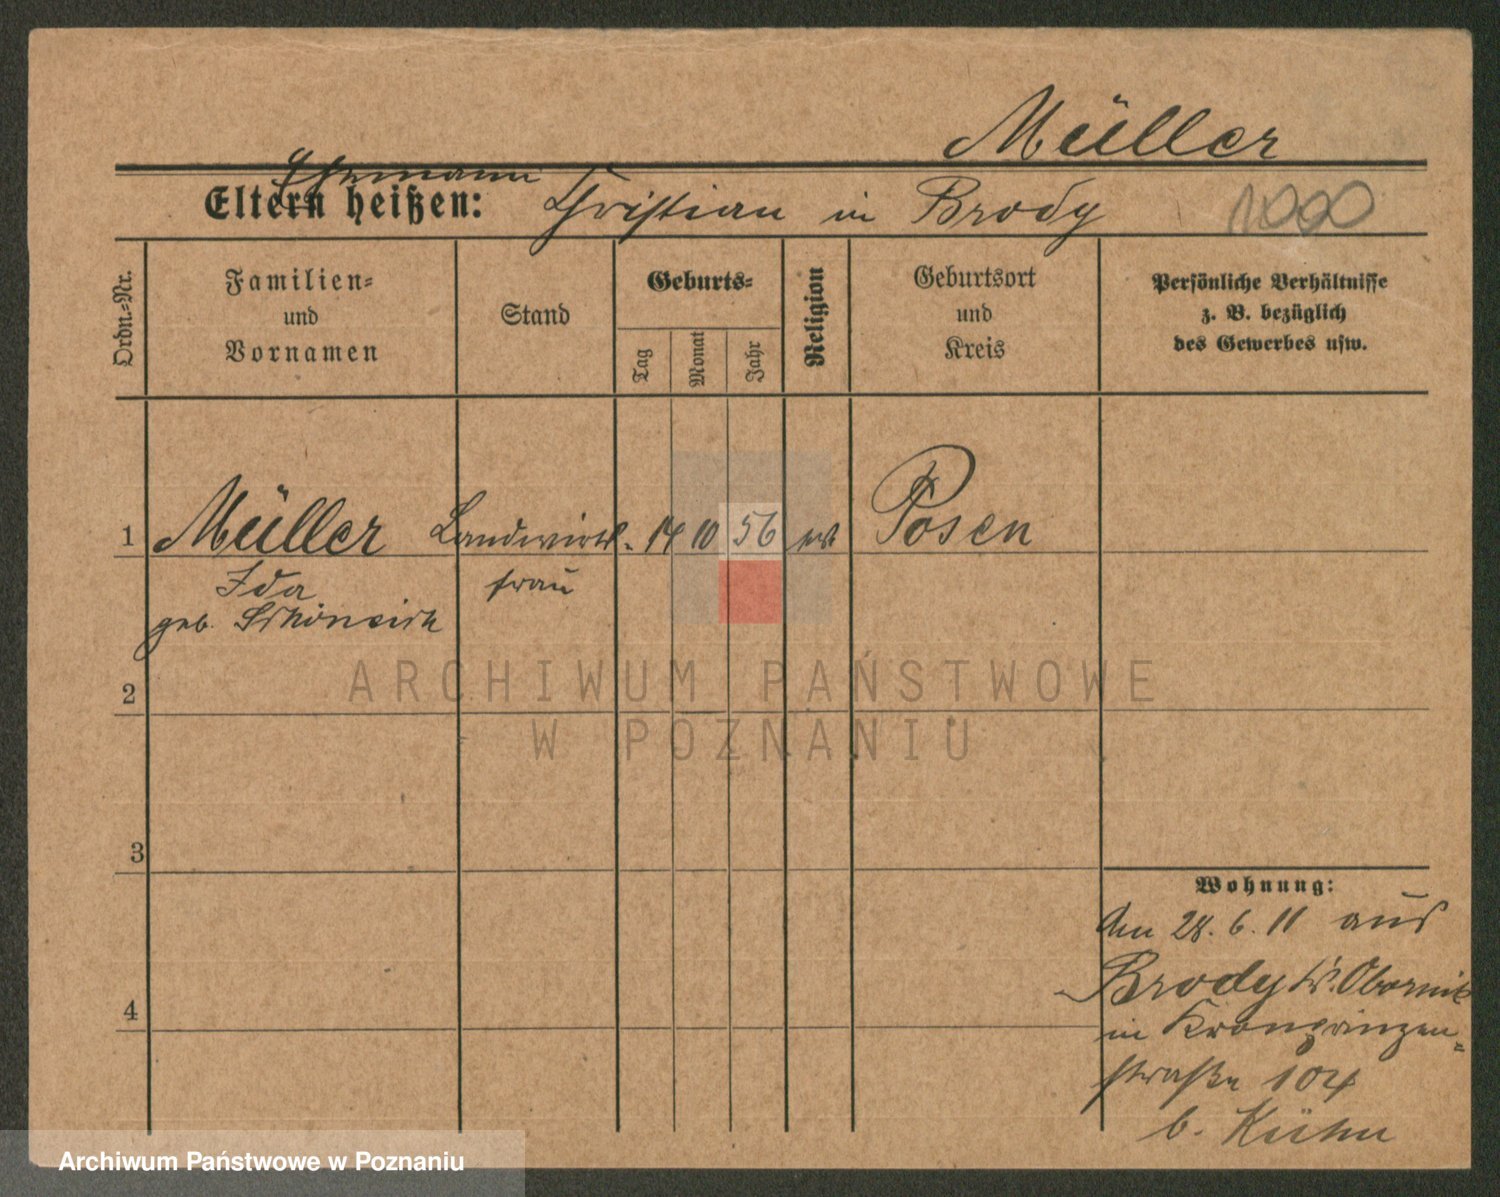 Müller
Ehemann
Eltern heißen: Christian in Brody
Ordn.-Nr.
Familien-
und
Vornamen
Stand
Geburts-
Tag
Monat
Jahr
Religion
Geburtsort
und
Kreis
Persönliche Verhältnisse
z. B. bezüglich
des Gewerbes usw.
1 Müller Landwirts- 14 10 56 Posen
Ida frau
geb.
2
3
4
Wohnung:
Am 28. 6. 11 aus
Brody Kr. Obornik
in Kronprinzen-
straße 104
b. Kühn
ARCHIWUM PAŃSTWOWE
W POZNANIU
Archiwum Państwowe w Poznaniu